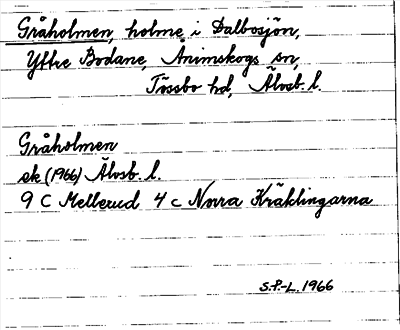 Gråholmen, holme i Dalbosjön,
Yttre Bodane, Ånimskogs sn,
Tössbo hd, Älvsb. l.
Gråholmen
ek (1966) Älvsb. l.
9 C Mellerud 4 c Norra Kräklingarna
S.P-L. 1966